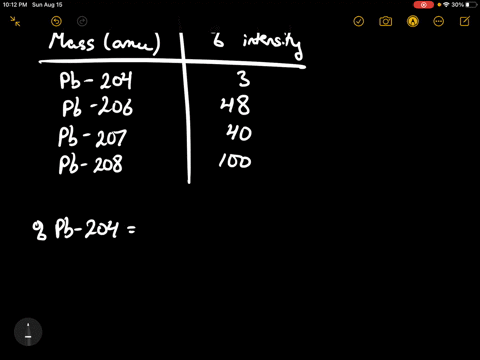 10:12 PM Sun Aug 15
30%
Mass (amu) % intensity
Pb-204 3
Pb-206 48
Pb-207 40
Pb-208 100
% Pb-204 =